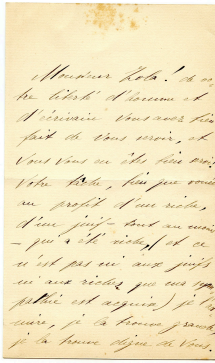 Monsieur Zola! de vo
tre liberté d'homme et
d'écrivain vous avez bien
fait de vous servir, et
vous vous en êtes bien servi
Votre tâche, bien que vous
au profit d'un riche,
d'un juif - tout au moins
- qui a été riche, (et ce
n'est pas ni aux juifs
ni aux riches que ma sym
pathie est acquise) je l'
je la trouve grande
je la trouve digne de vous.